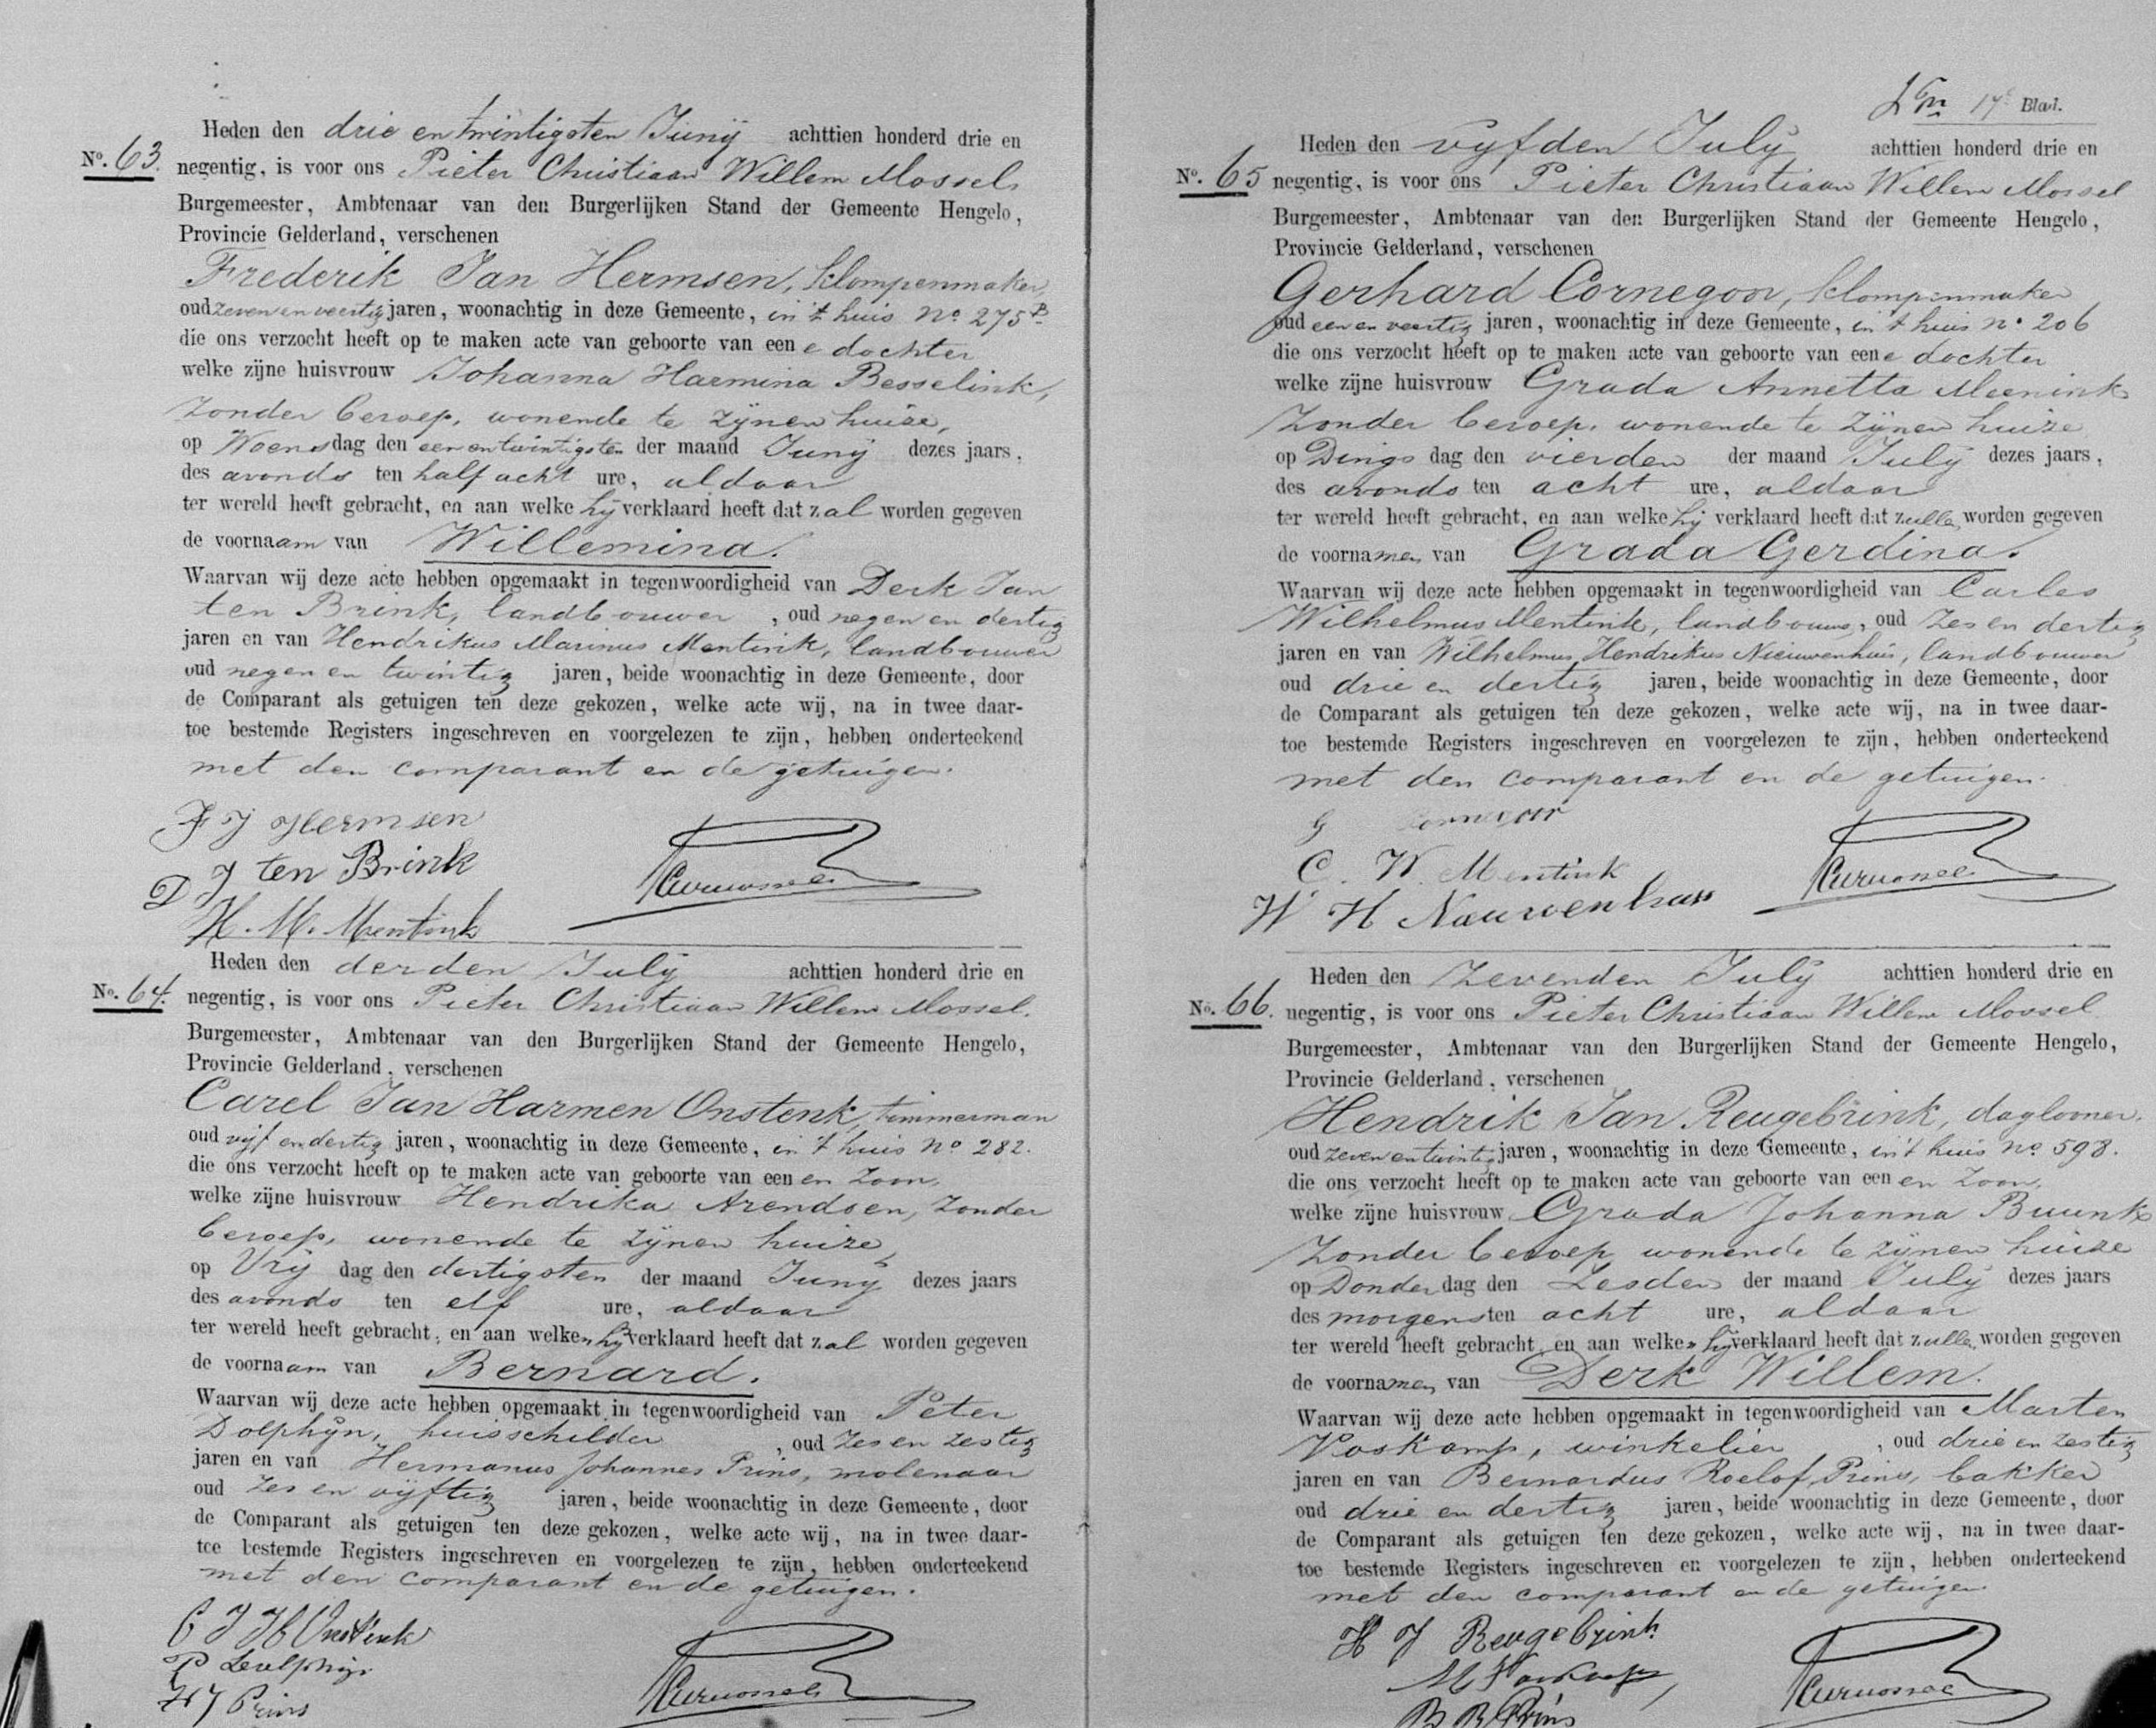 Heden den drie en twintigsten Junij achttien honderd drie en
No. 63. negentig, is voor ons Pieter Christiaan Willem Mossel,
Burgemeester, Ambtenaar van den Burgerlijken Stand der Gemeente Hengelo,
Provincie Gelderland, verschenen
Frederik Jan Hermsen, klompenmaker,
oud zeven en veertig jaren, woonachtig in deze Gemeente, in 't huis No. 275 B
die ons verzocht heeft op te maken acte van geboorte van eene dochter
welke zijne huisvrouw Johanna Harmina Besselink,
zonder beroep, wonende te zijnen huize,
op Woensdag den een en twintigsten der maand Junij dezes jaars,
des avonds ten half acht ure, aldaar
ter wereld heeft gebracht, en aan welke hij verklaard heeft dat zal worden gegeven
de voornaam van Willemina.
Waarvan wij deze acte hebben opgemaakt in tegenwoordigheid van Derk Jan
ten Brink, landbouwer, oud negen en dertig
jaren en van Hendrikus Marinus Mentink, landbouwer
oud negen en twintig jaren, beide woonachtig in deze Gemeente, door
de Comparant als getuigen ten deze gekozen, welke acte wij, na in twee daar-
toe bestemde Registers ingeschreven en voorgelezen te zijn, hebben onderteekend
met den comparant en de getuigen.
F J Hermsen
D J ten Brink
H. M. Mentink
Heden den derden July achttien honderd drie en
No. 64. negentig, is voor ons Pieter Christiaan Willem Mossel.
Burgemeester, Ambtenaar van den Burgerlijken Stand der Gemeente Hengelo,
Provincie Gelderland, verschenen
Carel Jan Harmen Onstenk, timmerman
oud vijf en dertig jaren, woonachtig in deze Gemeente, in 't huis No 282.
die ons verzocht heeft op te maken acte van geboorte van een en zoon,
welke zijne huisvrouw Hendrika Arendsen, zonder
beroep, wonende te zijnen huize,
op Vrijdag den dertigsten der maand Junij dezes jaars
des avonds ten elf ure, aldaar
ter wereld heeft gebracht, en aan welken hij verklaard heeft dat zal worden gegeven
de voornaam van Bernard.
Waarvan wij deze acte hebben opgemaakt in tegenwoordigheid van Peter
Dolphijn, huisschilder, oud zes en zestig
jaren en van Hermanus Johannes Prins, molenaar
oud zes en vijftig jaren, beide woonachtig in deze Gemeente, door
de Comparant als getuigen ten deze gekozen, welke acte wij, na in twee daar-
toe bestemde Registers ingeschreven en voorgelezen te zijn, hebben onderteekend
met den comparant en de getuigen.
C J H Onstenk
H J Prins
17e Blad.
Heden den vijfden July achttien honderd drie en
No. 65 negentig, is voor ons Pieter Christiaan Willem Mossel
Burgemeester, Ambtenaar van den Burgerlijken Stand der Gemeente Hengelo,
Provincie Gelderland, verschenen
Gerhard Cornegoor, klompenmaker
oud een en veertig jaren, woonachtig in deze Gemeente, in 't huis No 206
die ons verzocht heeft op te maken acte van geboorte van eene dochter
welke zijne huisvrouw Grada Annetta Meenink
zonder beroep, wonende te zijnen huize
op Dingsdag den vierden der maand July dezes jaars,
des avonds ten acht ure, aldaar
ter wereld heeft gebracht, en aan welke hij verklaard heeft dat zullen worden gegeven
de voornamen van Grada Gerdina.
Waarvan wij deze acte hebben opgemaakt in tegenwoordigheid van Carles
Wilhelmus Mentink, landbouwer, oud zes en dertig
jaren en van Wilhelmus Hendrikus Nieuwenhuis, landbouwer
oud drie en dertig jaren, beide woonachtig in deze Gemeente, door
de Comparant als getuigen ten deze gekozen, welke acte wij, na in twee daar-
toe bestemde Registers ingeschreven en voorgelezen te zijn, hebben onderteekend
met den comparant en de getuigen.
G Cornegoor
C. W. Mentink
W H
Heden den zevenden July achttien honderd drie en
No. 66. negentig, is voor ons Pieter Christiaan Willem Mossel
Burgemeester, Ambtenaar van den Burgerlijken Stand der Gemeente Hengelo,
Provincie Gelderland, verschenen
Hendrik Jan Reugebrink, daglooner.
oud zeven en twintig jaren, woonachtig in deze Gemeente, in 't huis No 598.
die ons verzocht heeft op te maken acte van geboorte van een en zoon,
welke zijne huisvrouw Grada Johanna Buunk
zonder beroep wonende te zijnen huize
op Donderdag den zesden der maand July dezes jaars
des morgens ten acht ure, aldaar
ter wereld heeft gebracht en aan welken hij verklaard heeft dat zullen worden gegeven
de voornamen van Derk Willem.
Waarvan wij deze acte hebben opgemaakt in tegenwoordigheid van Marten
Voskamp, winkelier, oud drie en zestig
jaren en van Bernardus Roelof Prins, bakker
oud drie en dertig jaren, beide woonachtig in deze Gemeente, door
de Comparant als getuigen ten deze gekozen, welke acte wij, na in twee daar-
toe bestemde Registers ingeschreven en voorgelezen te zijn, hebben onderteekend
met den comparant en de getuigen.
H J Reugebrink
M Voskamp
B R Prins